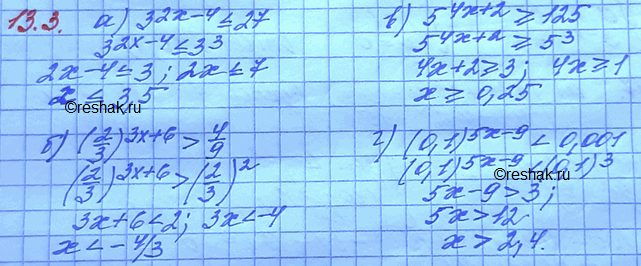 13.3. а) 3^(2x-4) ≤ 27
3^(2x-4) ≤ 3^3
2x-4 ≤ 3; 2x ≤ 7
x ≤ 3,5
©reshak.ru
б) (2/3)^(3x+6) > 4/9
(2/3)^(3x+6) > (2/3)^2
3x+6 < 2; 3x < -4
x < -4/3
в) 5^(4x+2) ≥ 125
5^(4x+2) ≥ 5^3
4x+2 ≥ 3; 4x ≥ 1
x ≥ 0,25
г) (0,1)^(5x-9) < 0,001
(0,1)^(5x-9) < (0,1)^3
©reshak.ru
5x-9 > 3;
5x > 12
x > 2,4.